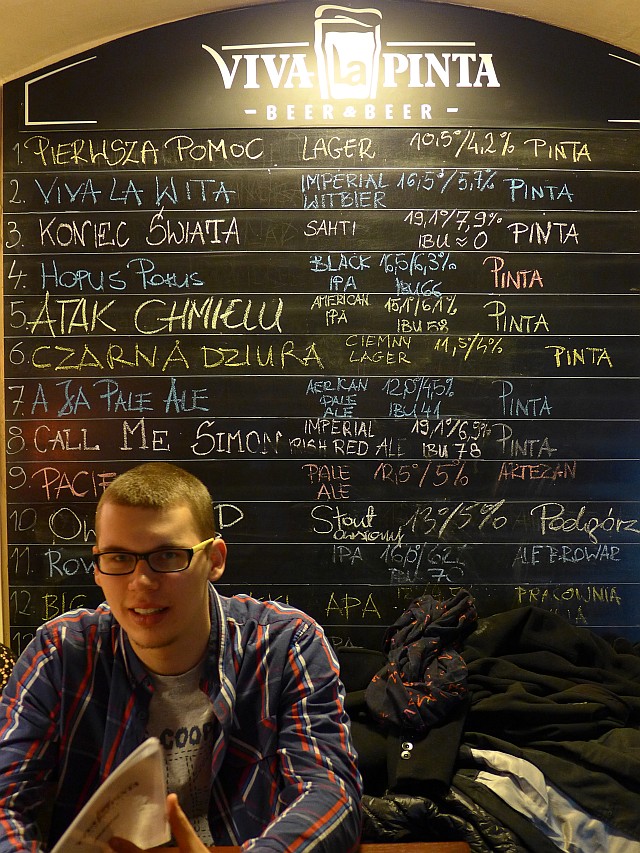 VIVA la PINTA
- BEER & BEER -
1. PIERWSZA POMOC LAGER 10,5°/4,2% PINTA
2. VIVA LA WITA IMPERIAL WITBIER 16,5°/5,7% PINTA
3. KONIEC ŚWIATA SAHTI 19,1°/7,9% IBU ≈ 0 PINTA
4. HOPUS POKUS BLACK IPA 16,5/6,3% IBU 66 PINTA
5. ATAK CHMIELU AMERICAN IPA 15,1°/6,1% IBU 58 PINTA
6. CZARNA DZIURA CIEMNY LAGER 11,5°/4% PINTA
7. A JA PALE ALE PALE ALE IBU 41 PINTA
8. CALL ME SIMON IMPERIAL IRISH RED ALE 19,1°/6,9% IBU 78 PINTA
9. PACIF PALE ALE 12,5°/5% ARTEZAN
10. Stout owsiany 13°/5% Podgórz
11. IPA IBU 70 ALEBROWAR
12. BIG SKI APA PRACOWNIA
COOP